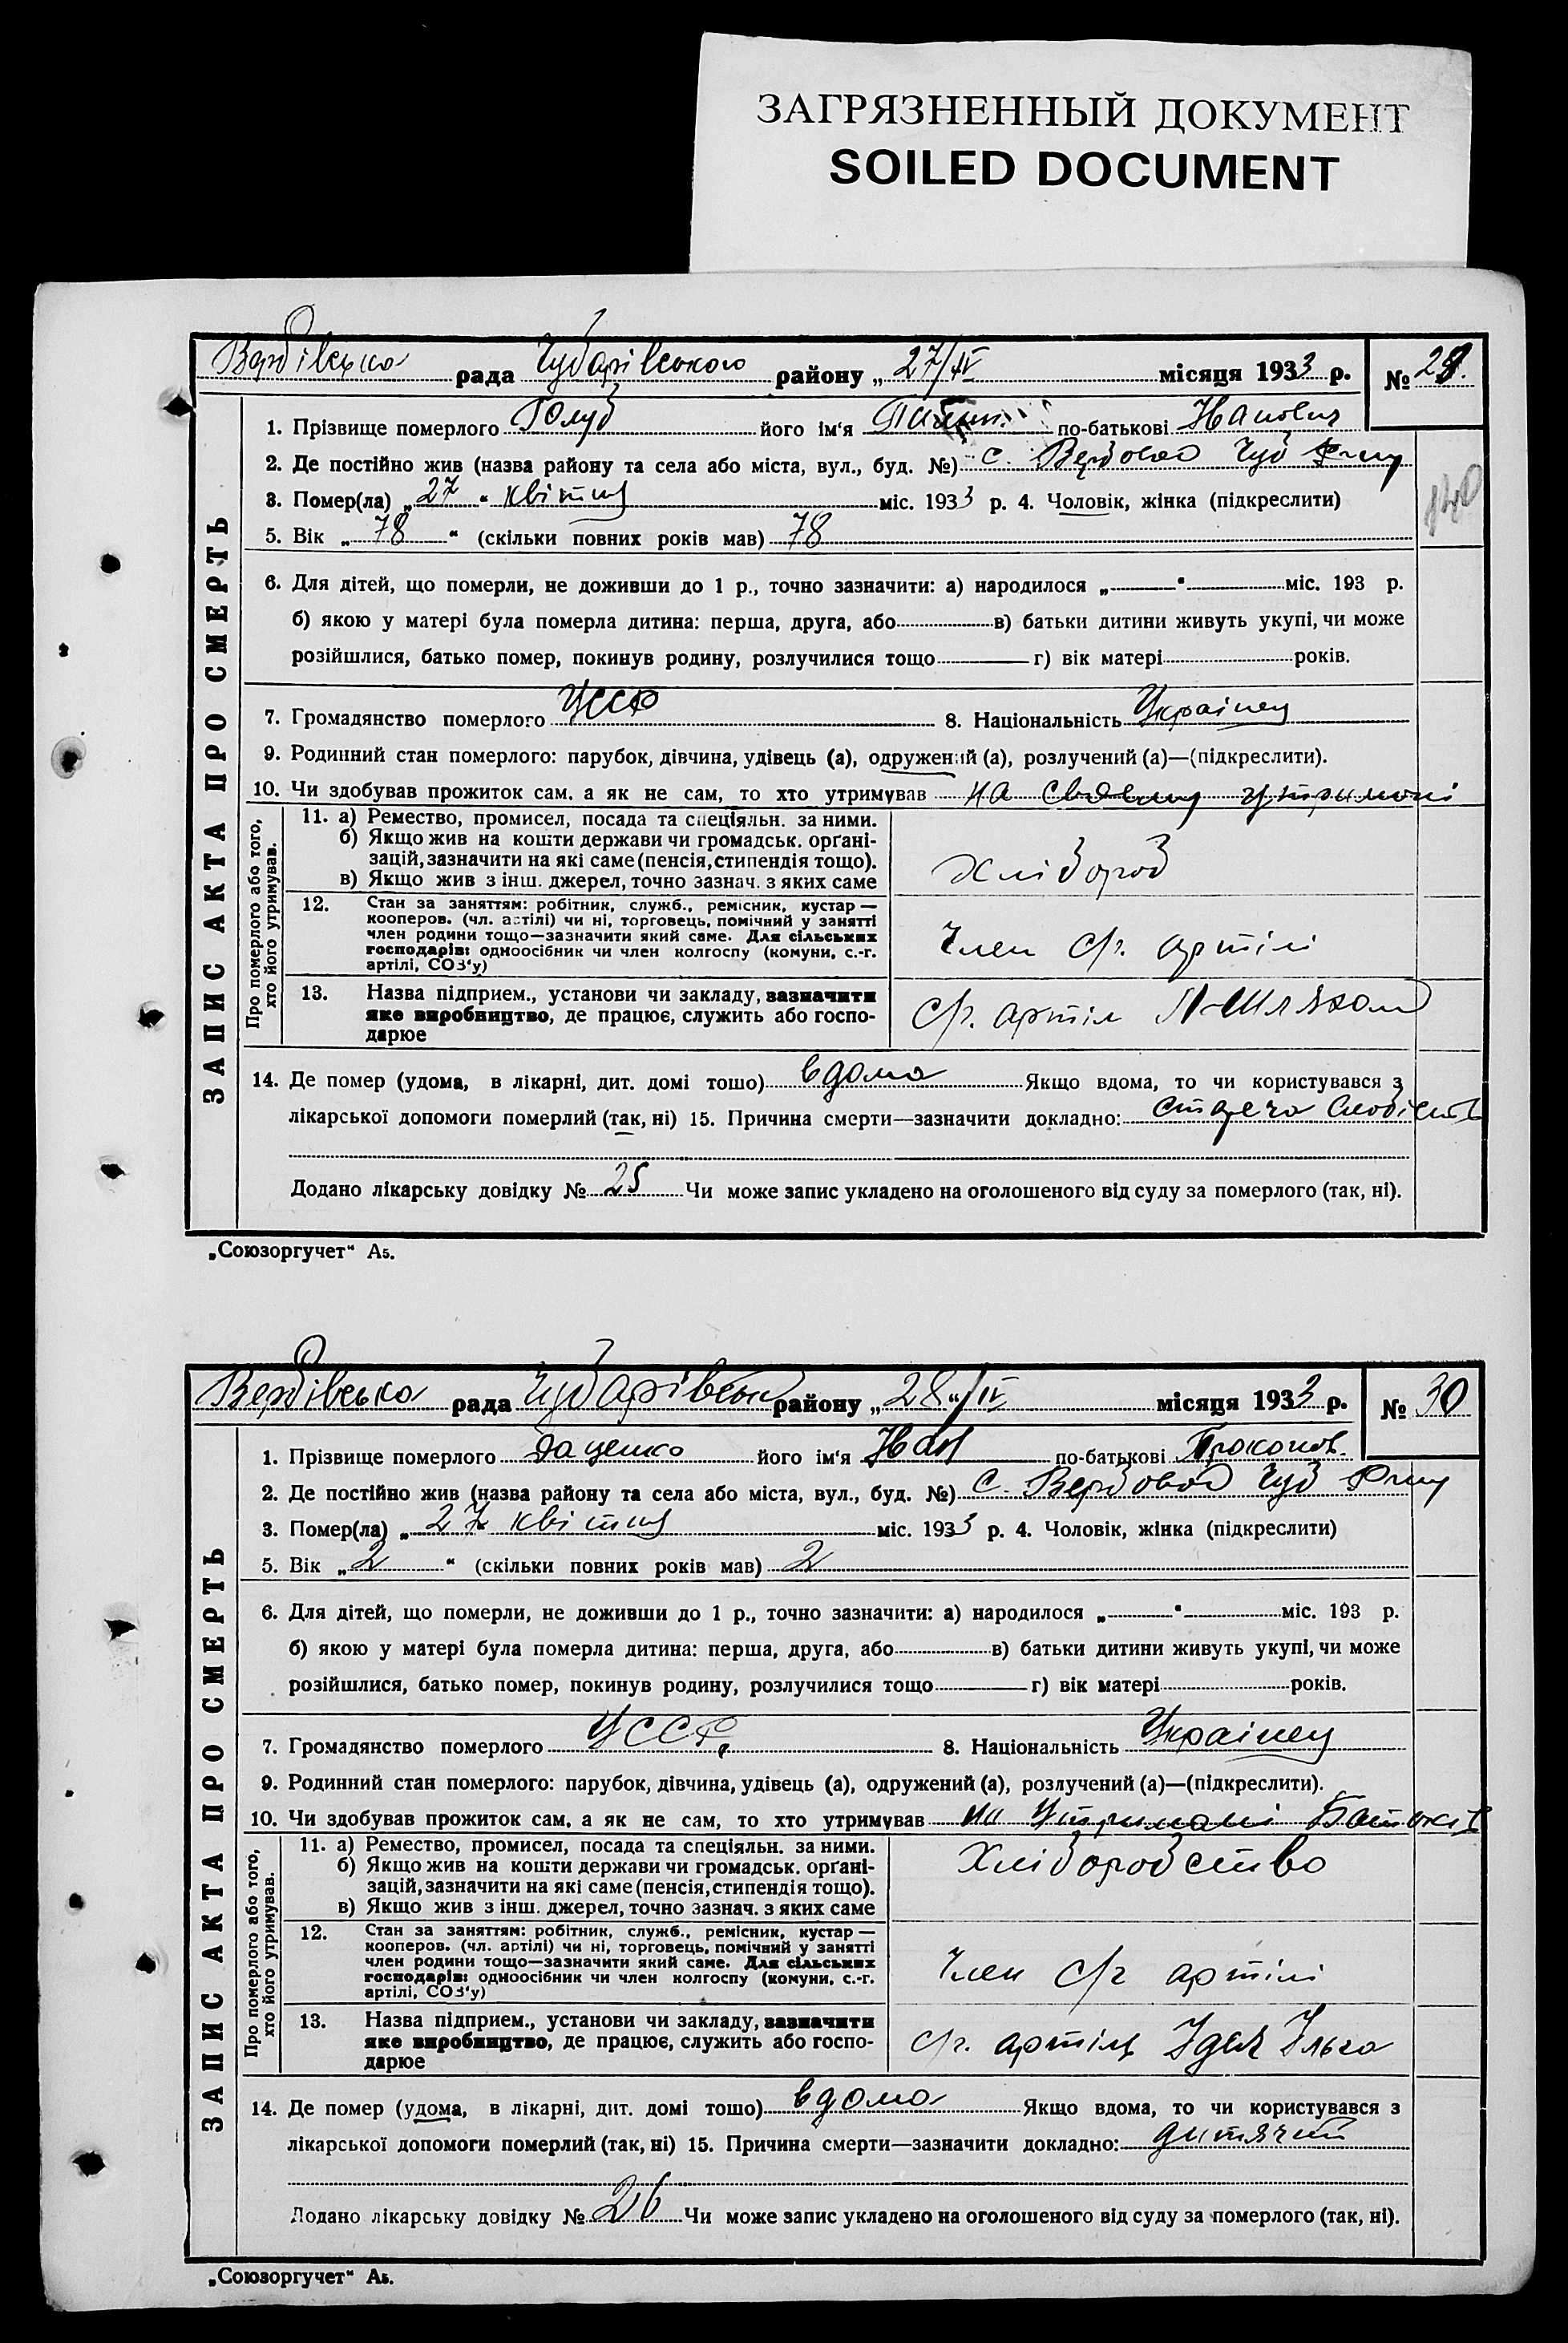 ЗАГРЯЗНЕННЫЙ ДОКУМЕНТ
SOILED DOCUMENT
Вербівська рада Чубарівського району „ 27/IV місяця 1933 р. № 29.
ЗАПИС АКТА ПРО СМЕРТЬ
1. Прізвище померлого Голуб його ім'я по-батькові Іванович
2. Де постійно жив (назва району та села або міста, вул., буд. №) с. Вербовое Чуб р-ну
3. Помер(ла) „ 27 “ квітня міс. 1933 р. 4. Чоловік, жінка (підкреслити)
5. Вік „ 78 “ (скільки повних років мав) 78
6. Для дітей, що померли, не доживши до 1 р., точно зазначити: а) народилося „ “ міс. 193 р.
б) якою у матері була померла дитина: перша, друга, або в) батьки дитини живуть укупі, чи може
розійшлися, батько помер, покинув родину, розлучилися тощо г) вік матері років.
7. Громадянство померлого УССР 8. Національність Украінец
9. Родинний стан померлого: парубок, дівчина, удівець (а), одружений (а), розлучений (а)—(підкреслити).
10. Чи здобував прожиток сам, а як не сам, то хто утримував на своему утримані
Про померлого або того,
хто його утримував.
11. а) Ремество, промисел, посада та спеціяльн. за ними.
б) Якщо жив на кошти держави чи громадськ. орґані-
зацій, зазначити на які саме (пенсія, стипендія тощо).
в) Якщо жив з інш. джерел, точно зазнач. з яких саме
Хлібороб
12. Стан за заняттям: робітник, служб., ремісник, кустар —
кооперов. (чл. артілі) чи ні, торговець, помічний у занятті
член родини тощо—зазначити який саме. Для сільських
господарів: одноосібник чи член колгоспу (комуни, с.-г.
артілі, СОЗ'у)
Член с/г. артілі
13. Назва підприєм., установи чи закладу, зазначити
яке виробництво, де працює, служить або госпо-
дарює
с/г. артіл Шляхом
14. Де помер (удома, в лікарні, дит. домі тошо) вдома Якщо вдома, то чи користувався з
лікарської допомоги померлий (так, ні) 15. Причина смерти—зазначити докладно: стареча
Додано лікарську довідку № 25 Чи може запис укладено на оголошеного від суду за померлого (так, ні).
„Союзоргучет“ А5.
Вербівська рада Чубарівськ району „ 28/IV місяця 1933 р. № 30
ЗАПИС АКТА ПРО СМЕРТЬ
1. Прізвище померлого Даценко його ім'я Іван по-батькові Прокопов.
2. Де постійно жив (назва району та села або міста, вул., буд. №) с. Вербовое Чуб р-ну
3. Помер(ла) „ 27 квітня міс. 1933 р. 4. Чоловік, жінка (підкреслити)
5. Вік „ 2 “ (скільки повних років мав) 2
6. Для дітей, що померли, не доживши до 1 р., точно зазначити: а) народилося „ “ міс. 193 р.
б) якою у матері була померла дитина: перша, друга, або в) батьки дитини живуть укупі, чи може
розійшлися, батько помер, покинув родину, розлучилися тощо г) вік матері років.
7. Громадянство померлого УССР 8. Національність Украінец
9. Родинний стан померлого: парубок, дівчина, удівець (а), одружений (а), розлучений (а)—(підкреслити).
10. Чи здобував прожиток сам, а як не сам, то хто утримував на утримані батьків
Про померлого або того,
хто його утримував.
11. а) Ремество, промисел, посада та спеціяльн. за ними.
б) Якщо жив на кошти держави чи громадськ. орґані-
зацій, зазначити на які саме (пенсія, стипендія тощо).
в) Якщо жив з інш. джерел, точно зазнач. з яких саме
Хліборобство
12. Стан за заняттям: робітник, служб., ремісник, кустар —
кооперов. (чл. артілі) чи ні, торговець, помічний у занятті
член родини тощо—зазначити який саме. Для сільських
господарів: одноосібник чи член колгоспу (комуни, с.-г.
артілі, СОЗ'у)
Член с/г артілі
13. Назва підприєм., установи чи закладу, зазначити
яке виробництво, де працює, служить або госпо-
дарює
с/г. артіль Ідея Ільча
14. Де помер (удома, в лікарні, дит. домі тошо) вдома Якщо вдома, то чи користувався з
лікарської допомоги померлий (так, ні) 15. Причина смерти—зазначити докладно: дитячий
Додано лікарську довідку № 26 Чи може запис укладено на оголошеного від суду за померлого (так, ні).
„Союзоргучет“ А5.